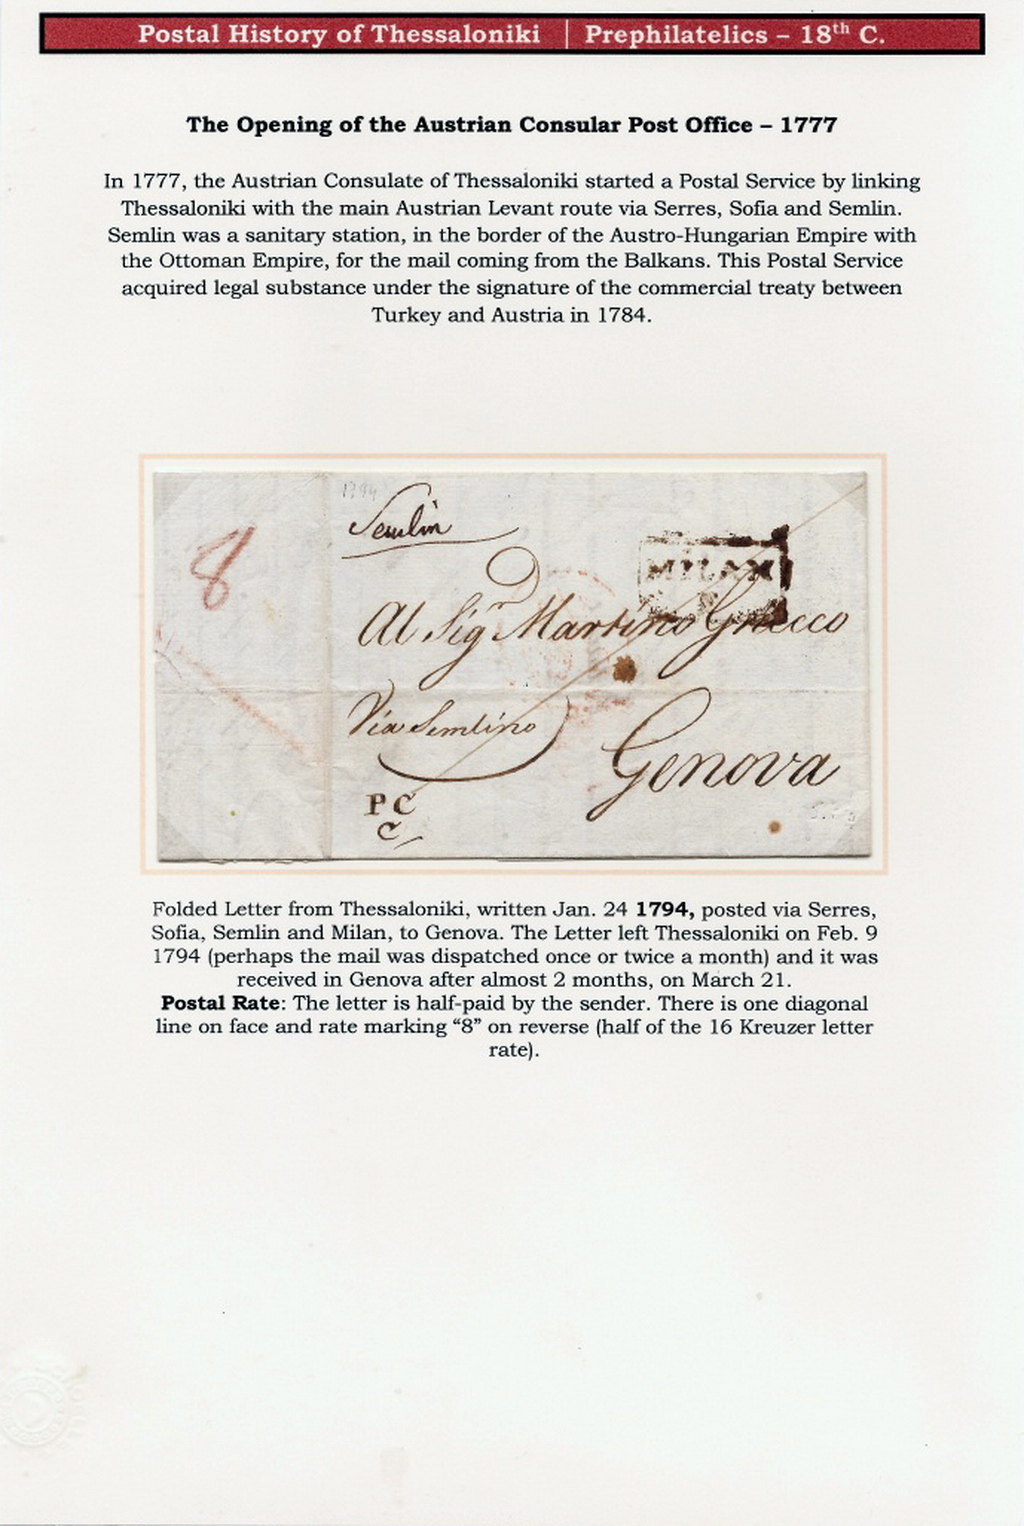 Postal History of Thessaloniki | Prephilatelics – 18th C.
The Opening of the Austrian Consular Post Office – 1777
In 1777, the Austrian Consulate of Thessaloniki started a Postal Service by linking
Thessaloniki with the main Austrian Levant route via Serres, Sofia and Semlin.
Semlin was a sanitary station, in the border of the Austro-Hungarian Empire with
the Ottoman Empire, for the mail coming from the Balkans. This Postal Service
acquired legal substance under the signature of the commercial treaty between
Turkey and Austria in 1784.
1794
Semlin
8
MILAN
Al Sigr Martino Gnecco
Via Semlino
Genova
P C
C
Folded Letter from Thessaloniki, written Jan. 24 1794, posted via Serres,
Sofia, Semlin and Milan, to Genova. The Letter left Thessaloniki on Feb. 9
1794 (perhaps the mail was dispatched once or twice a month) and it was
received in Genova after almost 2 months, on March 21.
Postal Rate: The letter is half-paid by the sender. There is one diagonal
line on face and rate marking “8” on reverse (half of the 16 Kreuzer letter
rate).